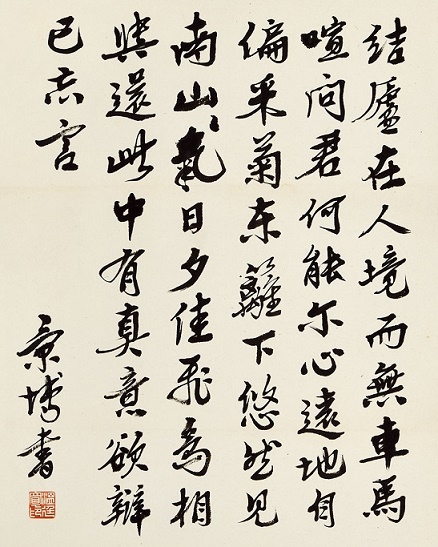 結廬在人境而無車馬
喧問君何能尔心遠地自
偏采菊東籬下悠然見
南山〻氣日夕佳飛鳥相
與還此中有真意欲辯
已忘言
景博書